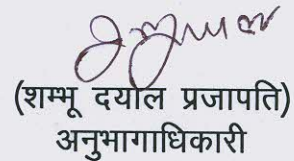 (शम्भू दयाल प्रजापति)
अनुभागाधिकारी